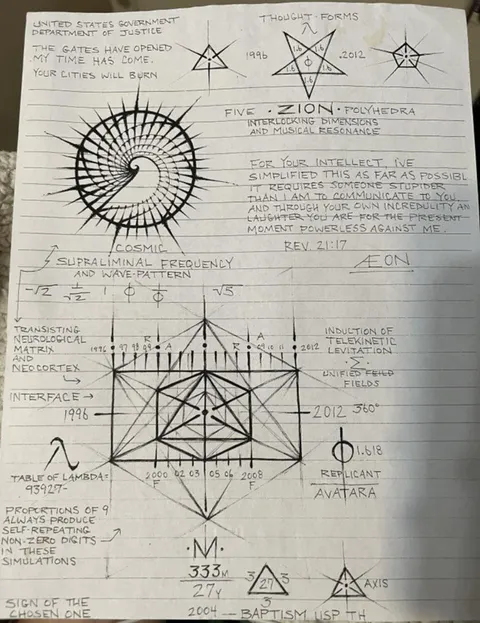 UNITED STATES GOVERNMENT
DEPARTMENT OF JUSTICE
THE GATES HAVE OPENED
MY TIME HAS COME.
YOUR CITIES WILL BURN
THOUGHT-FORMS
λ
1996
1.6 1.6
1.6 ϕ 1.6
1.6
.2012
FIVE · ZION · POLYHEDRA
INTERLOCKING DIMENSIONS
AND MUSICAL RESONANCE
FOR YOUR INTELLECT, I'VE
SIMPLIFIED THIS AS FAR AS POSSIBL
IT REQUIRES SOMEONE STUPIDER
THAN I AM TO COMMUNICATE TO YOU
AND THROUGH YOUR OWN INCREDULITY AN
LAUGHTER YOU ARE FOR THE PRESENT
MOMENT POWERLESS AGAINST ME.
REV. 21:17
ÆON
COSMIC
SUPRALIMINAL FREQUENCY
AND WAVE-PATTERN
-√2 1/√2 1 ϕ 1/ϕ √5
TRANSISTING
NEUROLOGICAL
MATRIX
AND
NEOCORTEX
INTERFACE →
1996 97 98 99 R A
A R 09 10 11 2012
INDUCTION OF
TELEKINETIC
LEVITATION
·Σ·
UNIFIED FIELD
FIELDS
1996
2012 360°
λ
TABLE OF LAMBDA=
93927-
2000 02 03 05 06 2008
F F
ϕ 1.618
REPLICANT
AVATARA
PROPORTIONS OF 9
ALWAYS PRODUCE
SELF-REPEATING
NON-ZERO DIGITS
IN THESE
SIMULATIONS
·M·
333M
27Y
3 27 3
3
AXIS
SIGN OF THE
CHOSEN ONE
2004 — BAPTISM USP TH